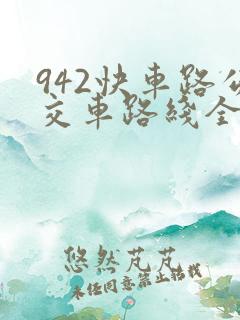 942快车路公
交车路线全
悠然芃芃
未经同意禁止转载